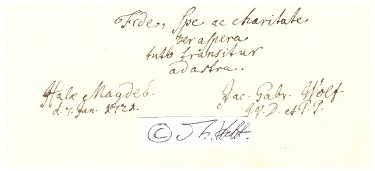 Fide, Spe ac charitate
per aspera
tuto transitur
ad astra.
Halæ Magdeb.
d. 7. Jan. 1721.
Jac. Gabr. Wolf.
J. V. D. et P. P.
©